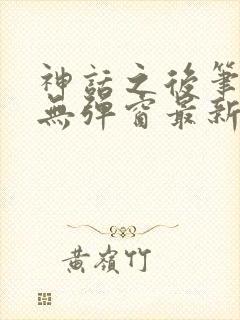 神話之後筆
無彈窗最新
黃嶺竹